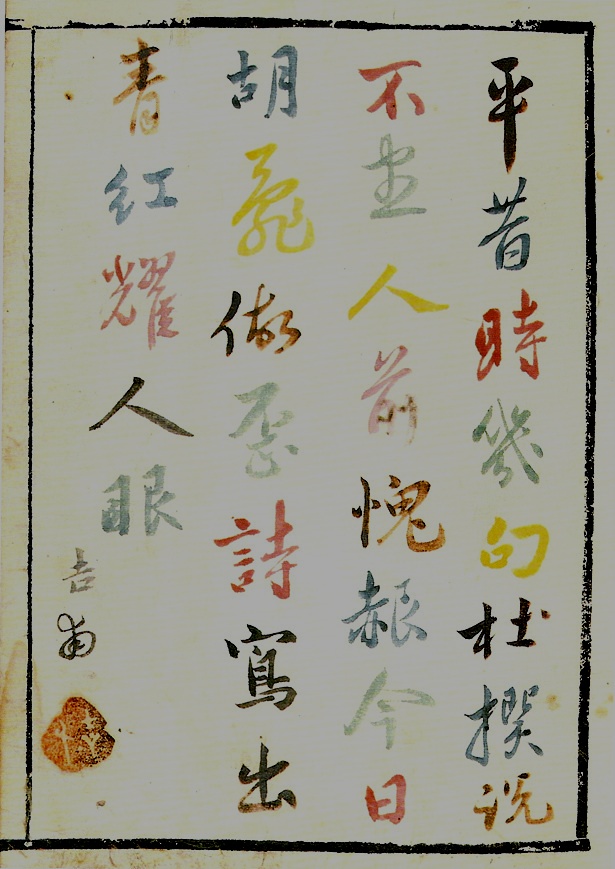 平昔時幾句杜撰説
不盡人前愧赧今日
胡亂做歪詩寫出
青紅耀人眼
吉甫